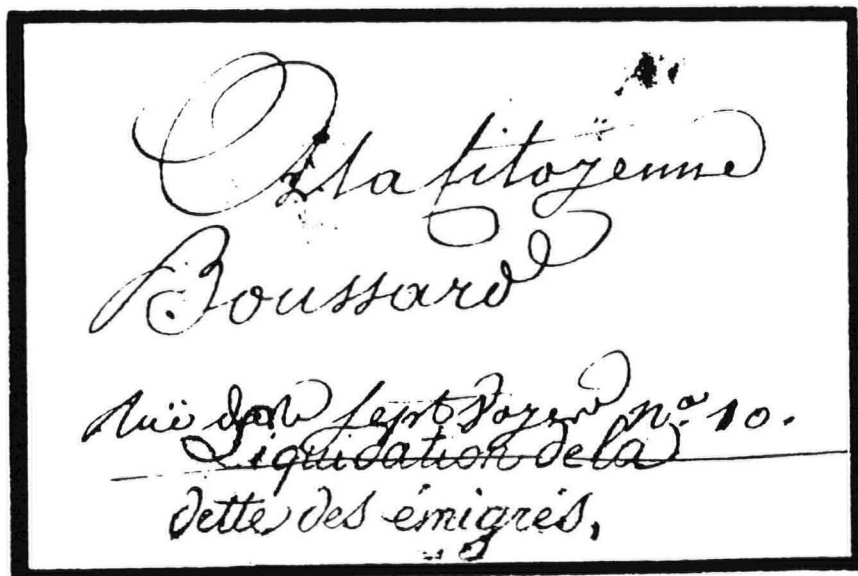 A la Citoyenne
Boussard
Ruë Sept Voyes n.º 10.
Liquidation de la
dette des émigrés,